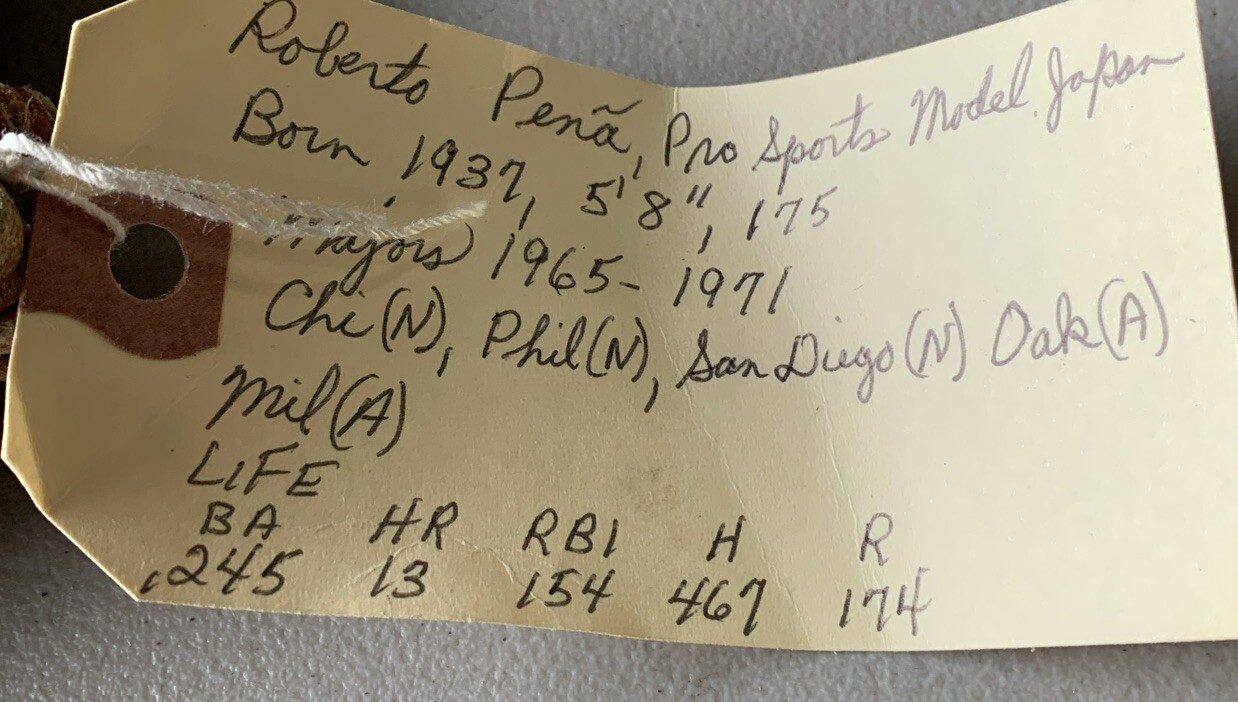 Roberto Peña, Pro Sports Model. Japan
Born 1937, 5'8", 175
Majors 1965-1971
Chi(N), Phil(N), San Diego(N) Oak(A)
Mil(A)
LIFE
BA HR RBI H R
.245 13 154 467 174